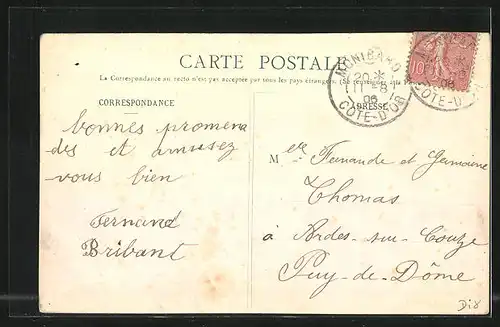 CARTE POSTALE
La Correspondance au recto n'est pas acceptée par tous les pays étrangers. (Se renseigner
CORRESPONDANCE
ADRESSE
MONTBARD
20 *
11-8
06
COTE-D'OR
10
08
COTE-D'OR
bonnes promena
des et amusez
vous bien
Fernand
Bribant
M elles Fernande et Germaine
Thomas
à Ardes-sur-Couze
Puy-de-Dôme